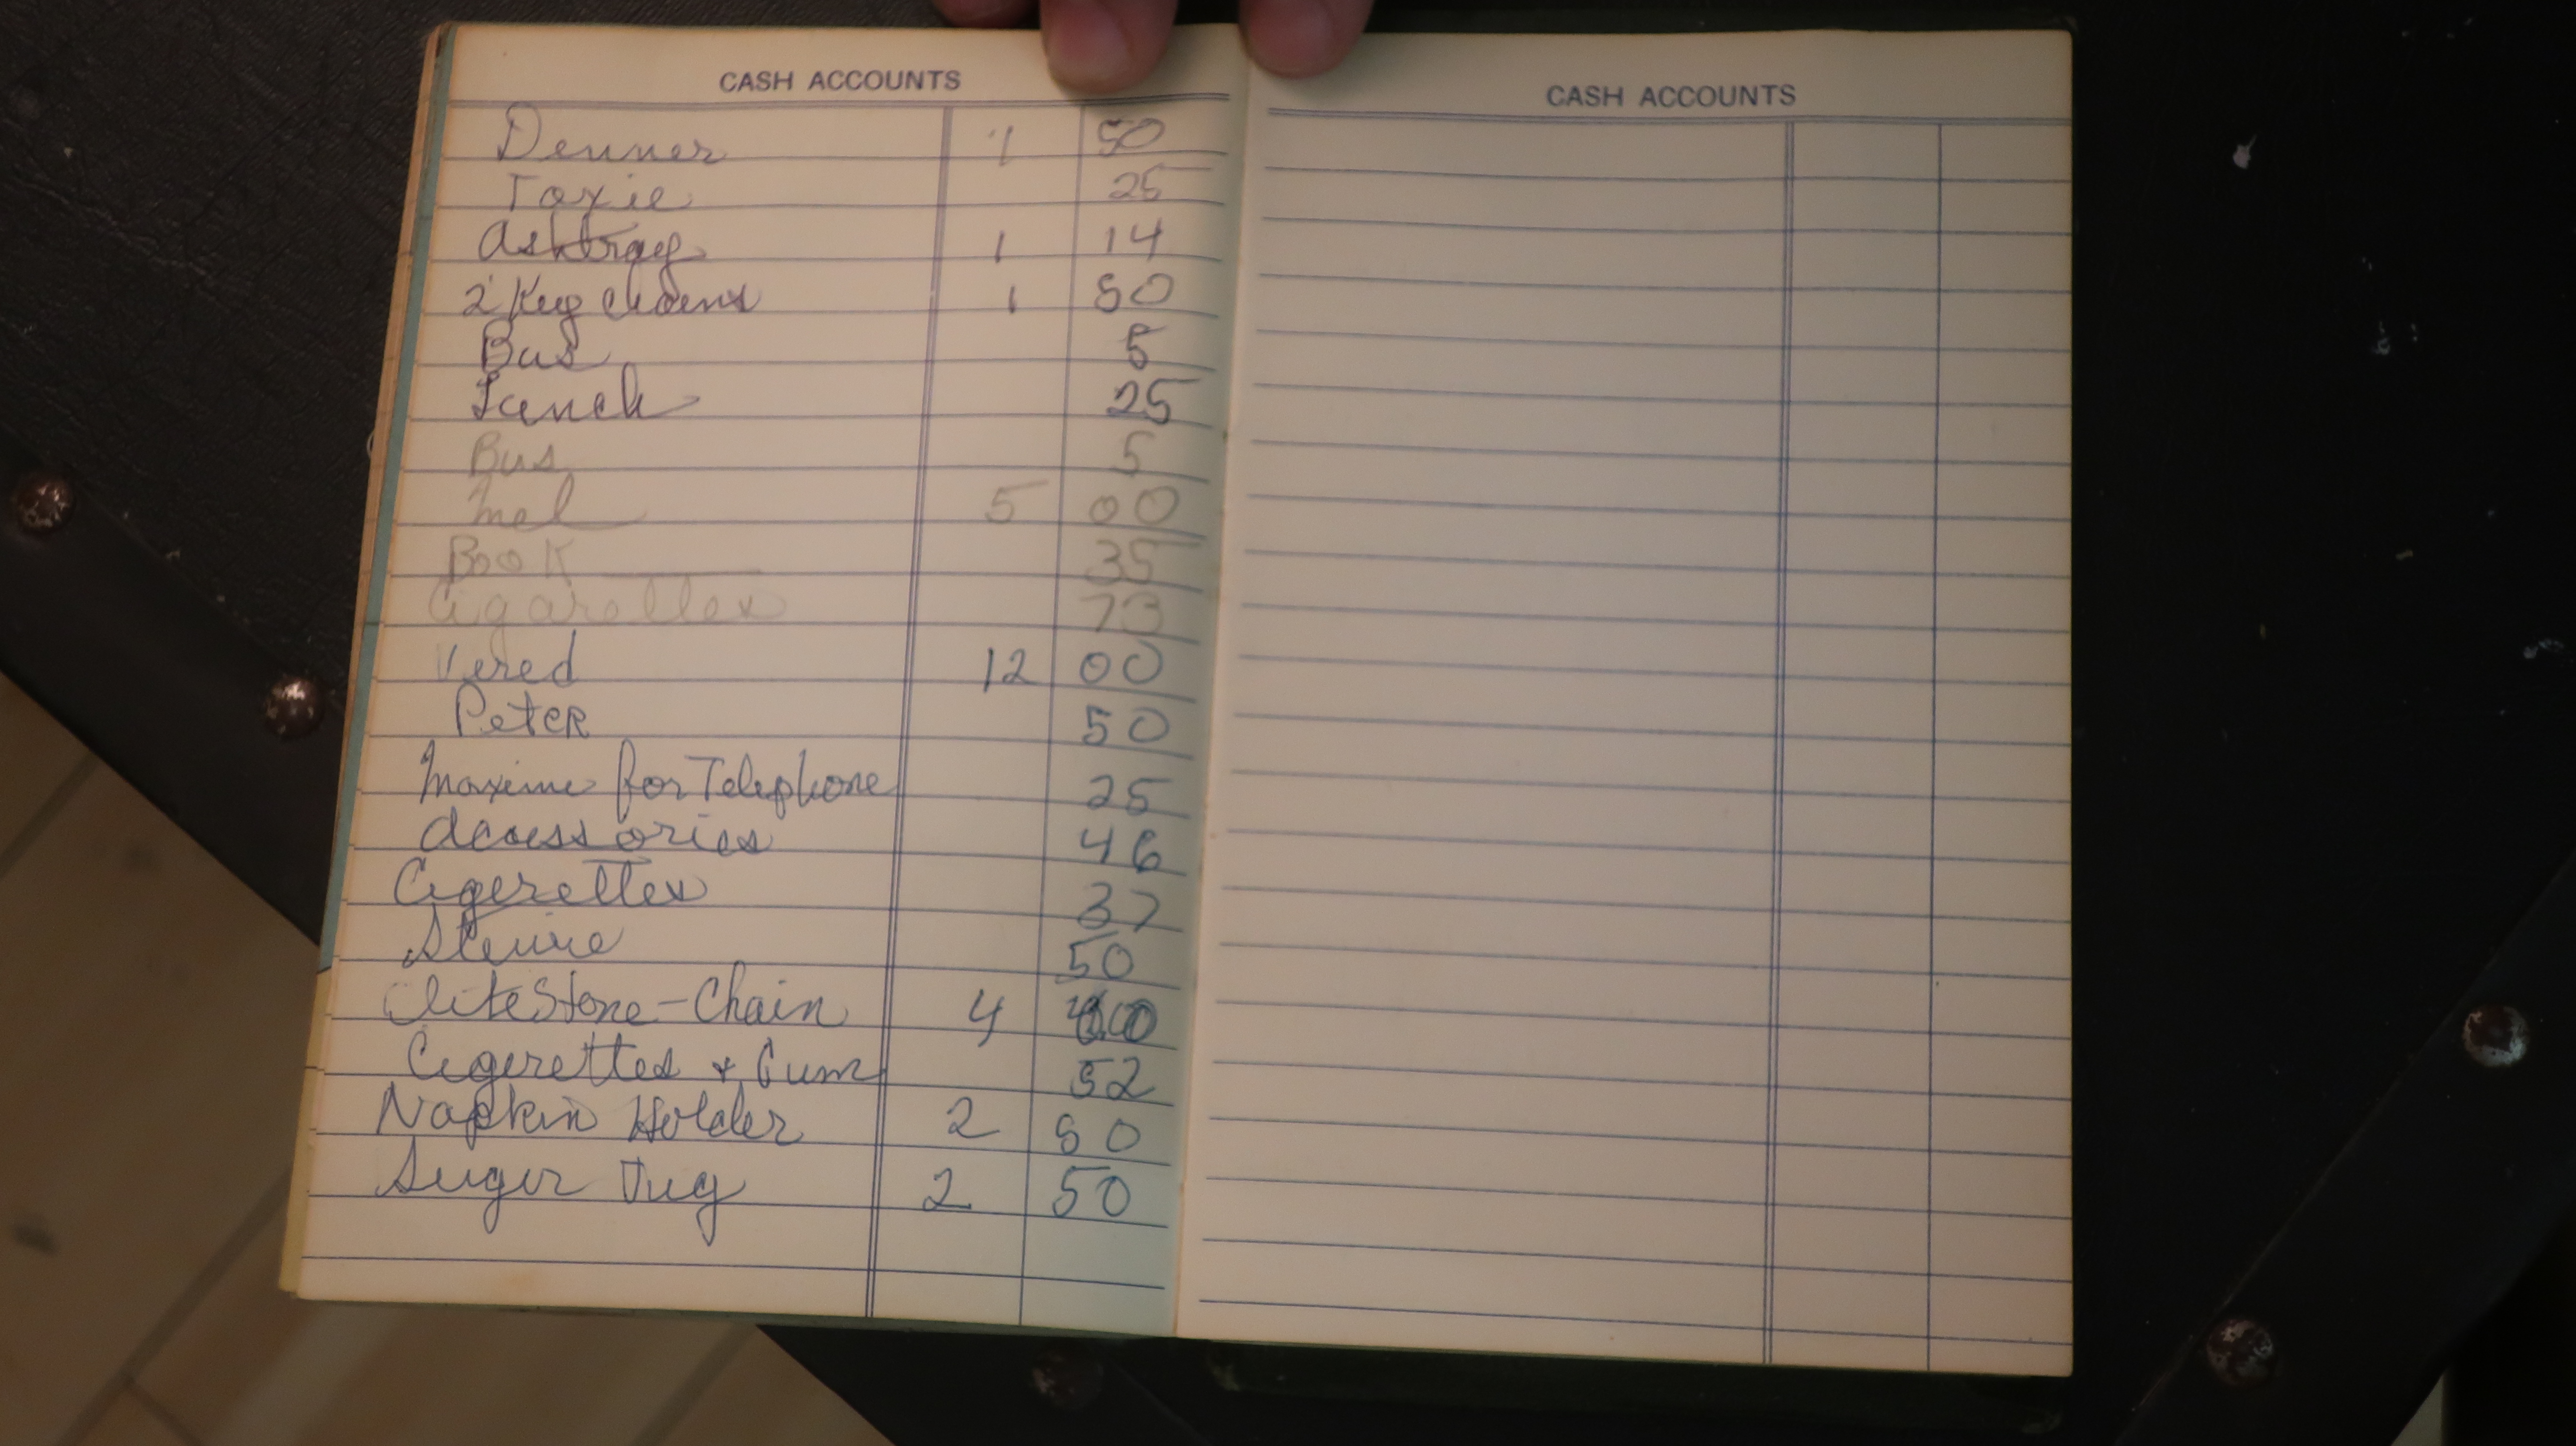 CASH ACCOUNTS
Denner 1 50
Taxie 25
Ashtray 1 14
2 Key Chains 1 50
Bus 5
Lunch 25
Bus 5
Mel 5 00
Book 35
Cigarettes 73
Vered 12 00
Peter 50
Maxime for Telephone 25
Accessories 46
Cigerettes 37
Stewie 50
Stone - Chain 4
Cigerettes + Gum 52
Napkin Holder 2 50
Suger Jug 2 50
CASH ACCOUNTS